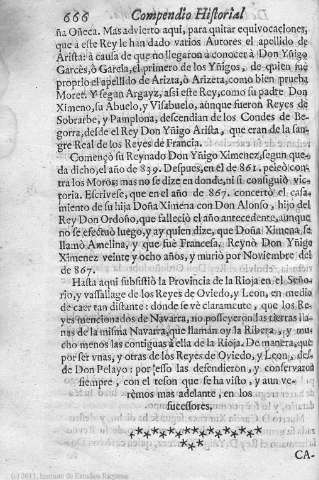 666 Compendio Historial
ña Oñeca. Mas advierto aqui, para quitar equivocaciones,
que à este Rey le han dado varios Autores el apellido de
Arista: à causa de que no llegaron a conocer à Don Yñigo
Garcès, ò Garcia, el primero de los Yñigos, de quien fuè
proprio el apellido de Arizta, ò Arizeta, como bien prueba
Moret. Y segun Argayz, assi este Rey, como su padre Don
Ximeno, su Abuelo, y Visabuelo, aunque fueron Reyes de
Sobrarbe, y Pamplona, descendian de los Condes de Be-
gorra, desde el Rey Don Yñigo Arista, que eran de la san-
gre Real de los Reyes de Francia.
Començò su Reynado Don Yñigo Ximenez, segun que-
da dicho, el año de 839. Despues, en el de 861. peleò con-
tra los Moros; mas no se dize en donde, ni si consiguiò vic-
toria. Escrivese, que en el año de 867. concertò el casa-
miento de su hija Doña Ximena con Don Alonso, hijo del
Rey Don Ordoño, que falleciò el año antecedente, aunque
no se efectuò luego, y ay quien dize, que Doña Ximena se
llamò Amelina, y que fuè Francesa. Reynò Don Yñigo
Ximenez veinte y ocho años, y muriò por Noviembre del
de 867.
Hasta aqui subsistiò la Provincia de la Rioja en el Seño-
rio, y vassallage de los Reyes de Oviedo, y Leon, en medio
de caer tan distante: donde se vè claramente, que los Re-
yes mencionados de Navarra, no posseyeron las tierras lla-
nas de la misma Navarra, que llaman oy la Ribera, y mu-
cho menos las contiguas à ella de la Rioja. De manera, que
por ser unas, y otras de los Reyes de Oviedo, y Leon, des-
de Don Pelayo: por esso las defendieron, y conservaron
siempre, con el teson que se ha visto, y aun ve-
rèmos mas adelante, en los
sucessores.
CA-
(c) 2011, Instituto de Estudios Riojanos